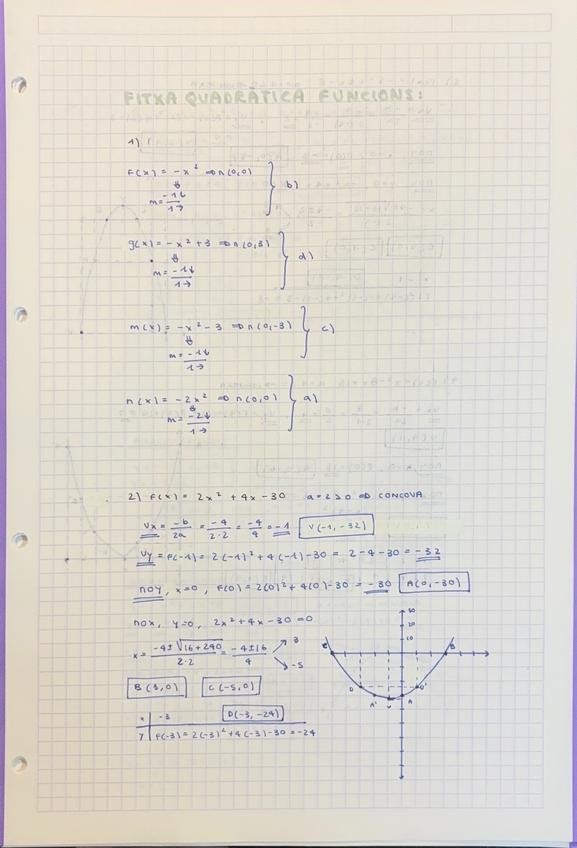 FITXA QUADRÀTICA FUNCIONS:
1)
f(x) = -x² ⇒ n(0,0)
m = -1↓ / 1→
b)
g(x) = -x² + 3 ⇒ n(0,3)
m = -1↓ / 1→
d)
m(x) = -x² - 3 ⇒ n(0,-3)
m = -1↓ / 1→
c)
n(x) = -2x² ⇒ n(0,0)
m = -2↓ / 1→
a)
2) f(x) = 2x² + 4x - 30 a=2>0 ⇒ CONCOVA
Vx = -b/2a = -4/2·2 = -4/4 = -1 V(-1,-32)
Vy = f(-1) = 2(-1)² + 4(-1) - 30 = 2 - 4 - 30 = -32
noy, x=0, f(0) = 2(0)² + 4(0) - 30 = -30 A(0,-30)
nox, y=0, 2x² + 4x - 30 = 0
x = -4 ± √16+240 / 2·2 = -4±16 / 4 3
-5
B(3,0) C(-5,0)
x -3 D(-3,-24)
y f(-3) = 2(-3)² + 4(-3) - 30 = -24
30
20
10
C B
D D'
A' V A